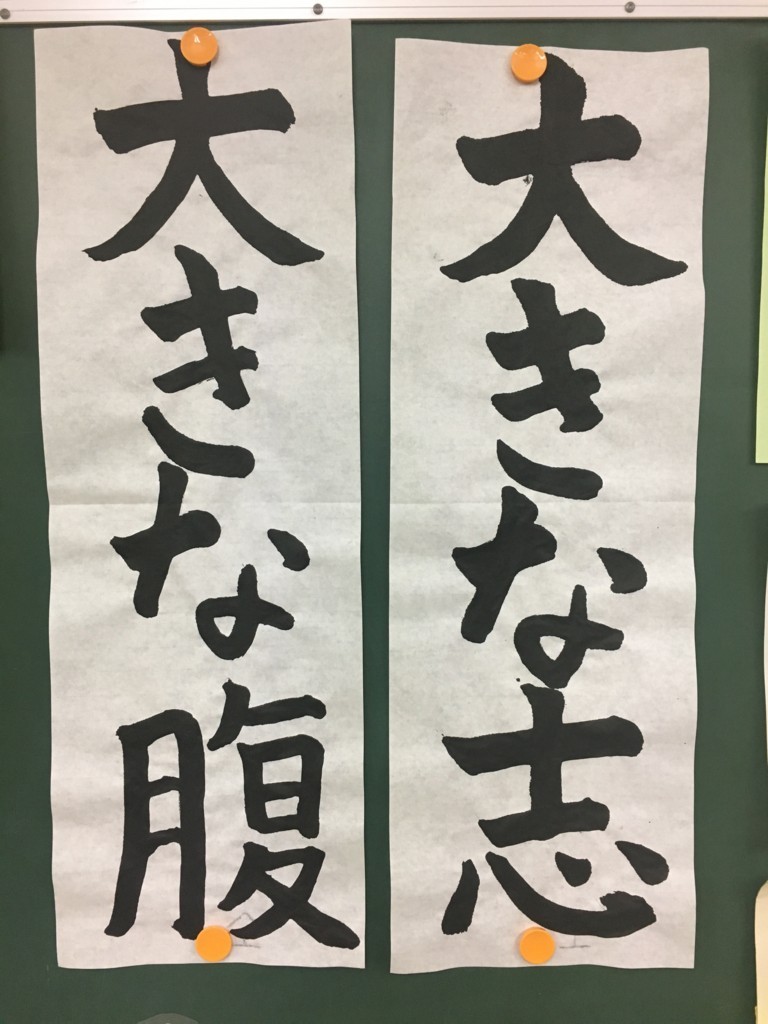 大きな志
大きな腹